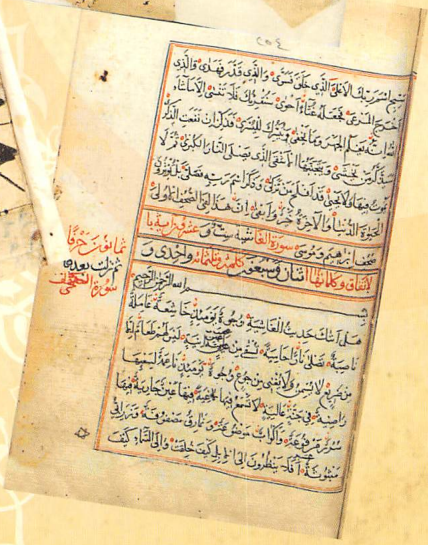 ٢٥٤
سبح اسم ربك الاعلى الذى خلق فسوى والذى قدر فهدى والذى
اخرج المرعى فجعله غثاء احوى سنقرئك فلا تنسى الا ما شاء
الله انه يعلم الجهر وما يخفى ونيسرك لليسرى فذكر ان نفعت الذكرى
سيذكر من يخشى ويتجنبها الاشقى الذى يصلى النار الكبرى ثم لا
يموت فيها ولا يحيى قد افلح من تزكى وذكر اسم ربه فصلى بل تؤثرون
الحيوة الدنيا والاخرة خير وابقى ان هذا لفى الصحف الاولى
صحف ابرهيم وموسى سورة الغاشية ست وعشرون اية با
لاتفاق وكلماتها اثنان وتسعون كلمة وثلثمائة واحدى و
ثمانون حرفا
نزلت بعد
سورة
بسم الله الرحمن الرحيم
هل اتيك حديث الغاشية وجوه يومئذ خاشعة عاملة
ناصبة تصلى نارا حامية تسقى من عين انية ليس لهم طعام الا
من ضريع لا يسمن ولا يغنى من جوع وجوه يومئذ ناعمة لسعيها
راضية فى جنة عالية لا تسمع فيها لاغية فيها عين جارية فيها
سرر مرفوعة واكواب موضوعة ونمارق مصفوفة وزرابى
مبثوثة افلا ينظرون الى الابل كيف خلقت والى السماء كيف